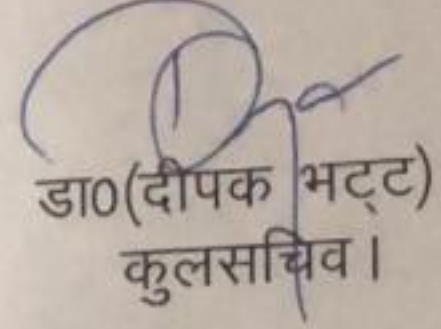 डा0(दीपक भट्ट)
कुलसचिव।